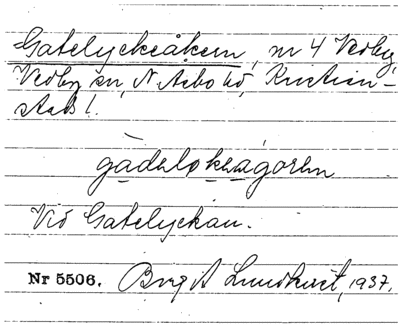 Gatelyckeåkern, nr 4 Vedby,
Vedby sn, N. Åsbo hd, Kristian-
stads l.
Vid Gatelyckan.
Nr 5506. Birgit Lundkvist, 1937.